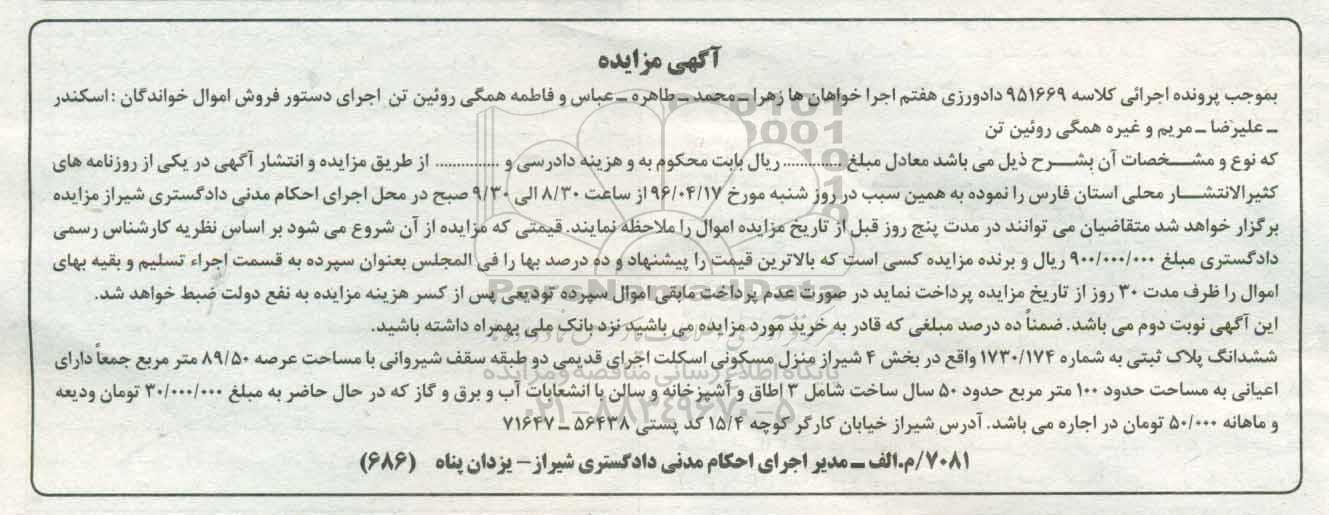 آگهی مزایده
بموجب پرونده اجرائی کلاسه ۹۵۱۶۶۹ دادورزی هفتم اجرا خواهان ها زهرا ـ محمد ـ طاهره ـ عباس و فاطمه همگی روئین تن اجرای دستور فروش اموال خواندگان : اسکندر
ـ علیرضا ـ مریم و غیره همگی روئین تن
که نوع و مشخصات آن بشرح ذیل می باشد معادل مبلغ .............. ریال بابت محکوم به و هزینه دادرسی و ............... از طریق مزایده و انتشار آگهی در یکی از روزنامه های
کثیرالانتشار محلی استان فارس را نموده به همین سبب در روز شنبه مورخ ۹۶/۰۴/۱۷ از ساعت ۸/۳۰ الی ۹/۳۰ صبح در محل اجرای احکام مدنی دادگستری شیراز مزایده
برگزار خواهد شد متقاضیان می توانند در مدت پنج روز قبل از تاریخ مزایده اموال را ملاحظه نمایند. قیمتی که مزایده از آن شروع می شود بر اساس نظریه کارشناس رسمی
دادگستری مبلغ ۹۰۰/۰۰۰/۰۰۰ ریال و برنده مزایده کسی است که بالاترین قیمت را پیشنهاد و ده درصد بها را فی المجلس بعنوان سپرده به قسمت اجراء تسلیم و بقیه بهای
اموال را ظرف مدت ۳۰ روز از تاریخ مزایده پرداخت نماید در صورت عدم پرداخت مابقی اموال سپرده تودیعی پس از کسر هزینه مزایده به نفع دولت ضبط خواهد شد.
این آگهی نوبت دوم می باشد. ضمناً ده درصد مبلغی که قادر به خرید مورد مزایده می باشید نزد بانک ملی بهمراه داشته باشید.
ششدانگ پلاک ثبتی به شماره ۱۷۳۰/۱۷۴ واقع در بخش ۴ شیراز منزل مسکونی اسکلت اجرای قدیمی دو طبقه سقف شیروانی با مساحت عرصه ۸۹/۵۰ متر مربع جمعاً دارای
اعیانی به مساحت حدود ۱۰۰ متر مربع حدود ۵۰ سال ساخت شامل ۳ اطاق و آشپزخانه و سالن با انشعابات آب و برق و گاز که در حال حاضر به مبلغ ۳۰/۰۰۰/۰۰۰ تومان ودیعه
و ماهانه ۵۰/۰۰۰ تومان در اجاره می باشد. آدرس شیراز خیابان کارگر کوچه ۱۵/۴ کد پستی ۵۶۴۳۸ ـ ۷۱۶۴۷
۷۰۸۱/م.الف ـ مدیر اجرای احکام مدنی دادگستری شیراز - یزدان پناه (۶۸۶)
ParsNamadData
پایگاه اطلاع رسانی مناقصه و مزایده
۰۲۱-۸۸۳۴۹۶۷۰-۵